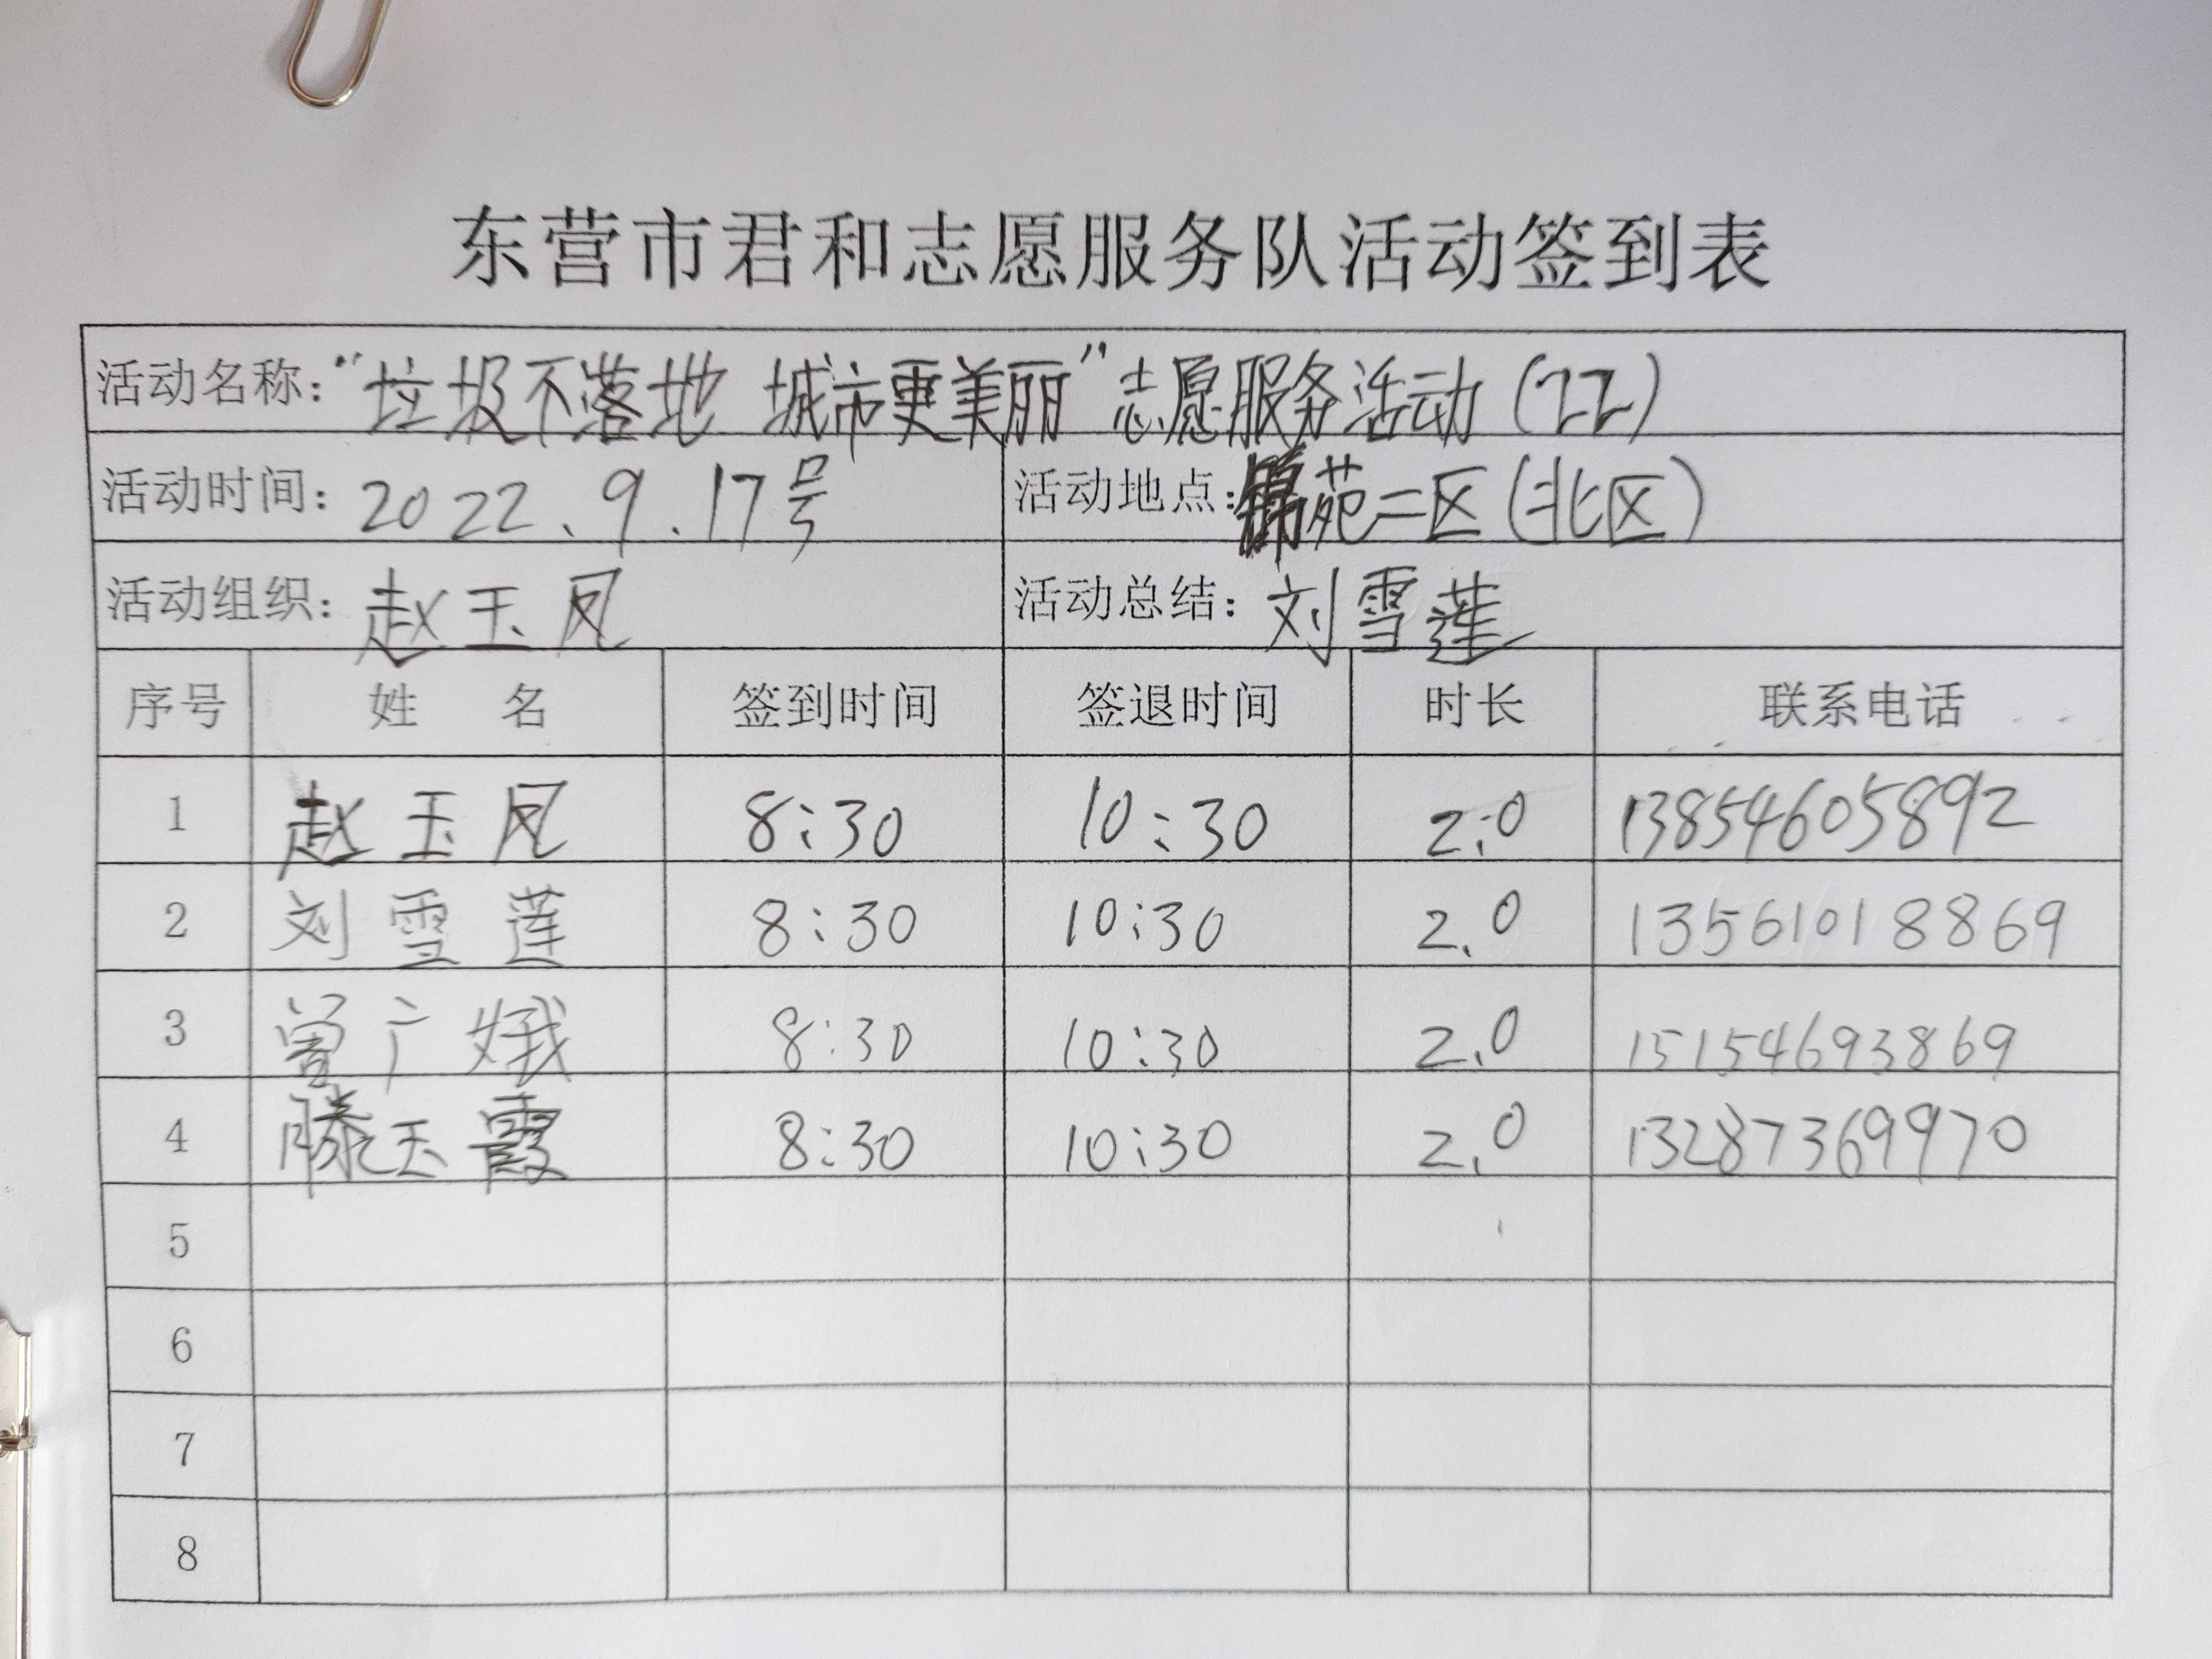 东营市君和志愿服务队活动签到表
活动名称：“垃圾不落地 城市更美丽”志愿服务活动（22）
活动时间：2022.9.17号 活动地点：锦苑二区（北区）
活动组织：赵玉凤 活动总结：刘雪莲
序号 姓 名 签到时间 签退时间 时长 联系电话
1 赵玉凤 8:30 10:30 2.0 13854605892
2 刘雪莲 8:30 10:30 2.0 13561018869
3 曾广娥 8:30 10:30 2.0 15154693869
4 滕玉霞 8:30 10:30 2.0 13287369970
5
6
7
8